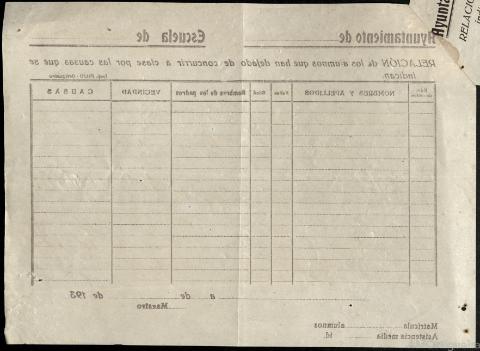 Ayuntamiento de Escuela de
RELACIÓN de los alumnos que han dejado de concurrir a clase por las causas que se
indican.
NOMBRES Y APELLIDOS Edad Nombres de los padres VECINDAD CAUSAS
a de de 193
Maestro
Matrícula alumnos
Asistencia media id.
Ayunta
RELACIO
indi